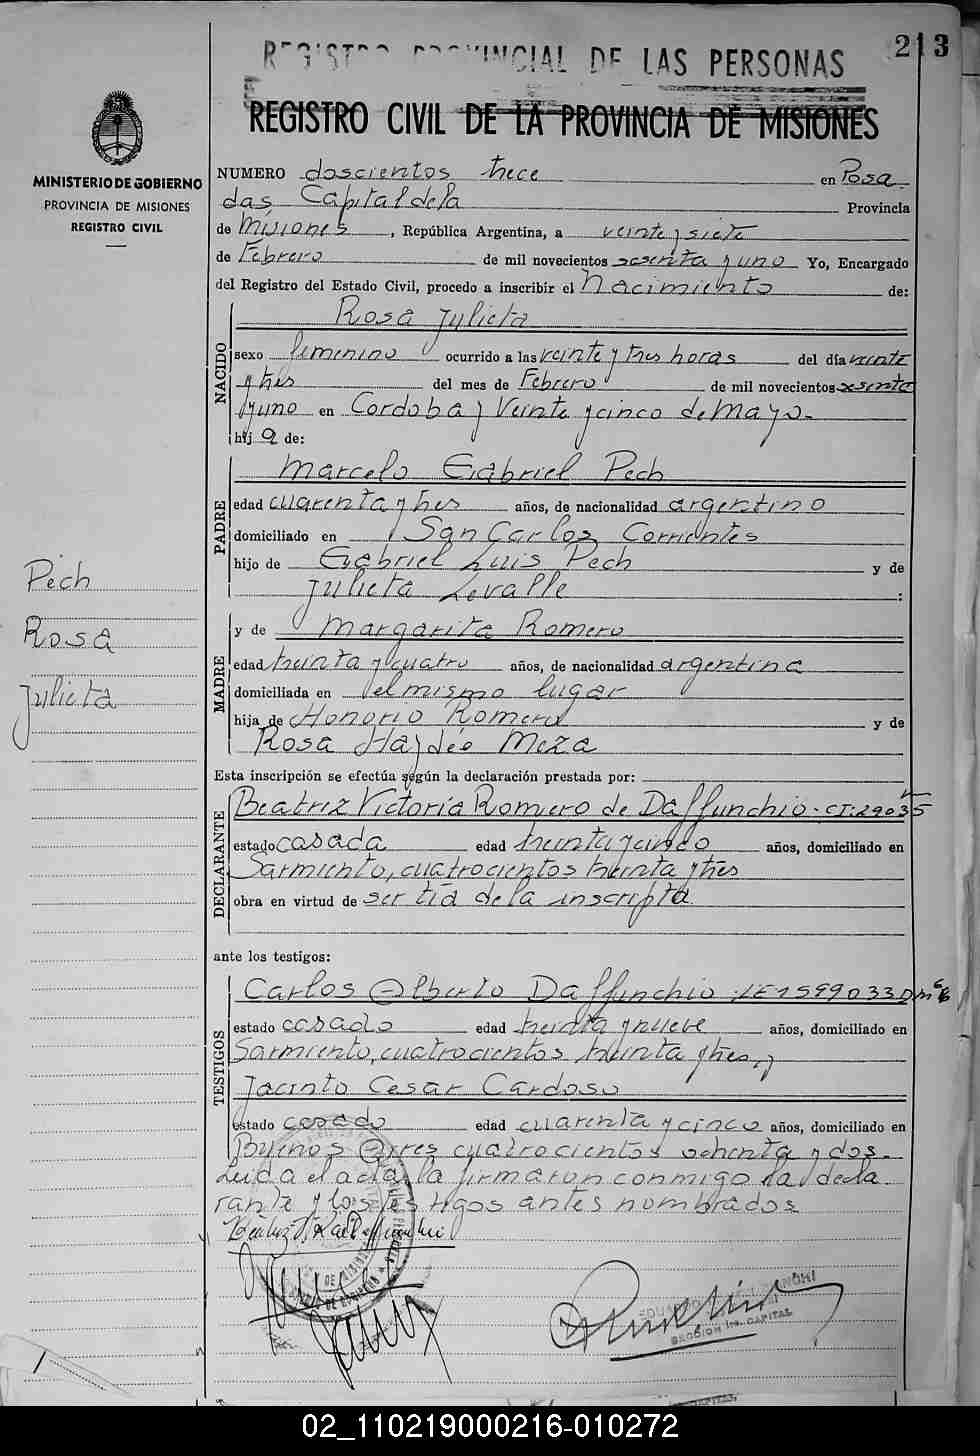 213
REGISTRO PROVINCIAL DE LAS PERSONAS
REGISTRO CIVIL DE LA PROVINCIA DE MISIONES
MINISTERIO DE GOBIERNO
PROVINCIA DE MISIONES
REGISTRO CIVIL
NUMERO doscientos trece en Posa
das Capital de la Provincia
de Misiones, República Argentina, a veinte y siete
de Febrero de mil novecientos sesenta y uno Yo, Encargado
del Registro del Estado Civil, procedo a inscribir el Nacimiento de:
NACIDO
Rosa Julieta
sexo femenino ocurrido a las veinte y tres horas del día veinte
y tres del mes de Febrero de mil novecientos sesenta
y uno en Cordoba y Veinte y cinco de Mayo.
hij a de:
PADRE
Marcelo Gabriel Pech
edad cuarenta y tres años, de nacionalidad argentino
domiciliado en San Carlos Corrientes
hijo de Gabriel Luis Pech y de
Julieta Levalle :
Pech
Rosa
Julieta
MADRE
y de Margarita Romero
edad treinta y cuatro años, de nacionalidad argentina
domiciliada en el mismo lugar
hija de Honorio Romero y de
Rosa Haydée Meza
Esta inscripción se efectúa según la declaración prestada por:
DECLARANTE
Beatriz Victoria Romero de Daffunchio. CI: 29035
estado casada edad treinta y cinco años, domiciliado en
Sarmiento, cuatrocientos treinta y tres
obra en virtud de ser tía de la inscripta
ante los testigos:
TESTIGOS
Carlos Alberto Daffunchio. LE 1599033 DM
estado casado edad treinta y nueve años, domiciliado en
Sarmiento, cuatrocientos treinta y tres, y
Jacinto Cesar Cardoso
estado casado edad cuarenta y cinco años, domiciliado en
Buenos Aires cuatrocientos ochenta y dos.
Leida el acta, la firmaron conmigo la decla
rante y los testigos antes nombrados
SECCION 1ra. CAPITAL
02_110219000216-010272